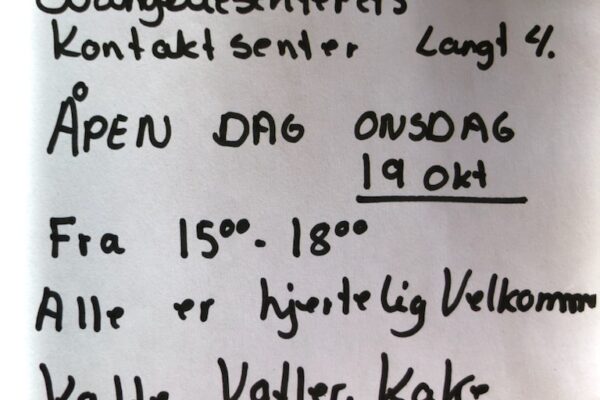 Kontaktsenter Langt 4.
ÅPEN DAG ONSDAG
19 okt
Fra 15⁰⁰- 18⁰⁰
Alle er hjertelig Velkommn
Vafler. Kake